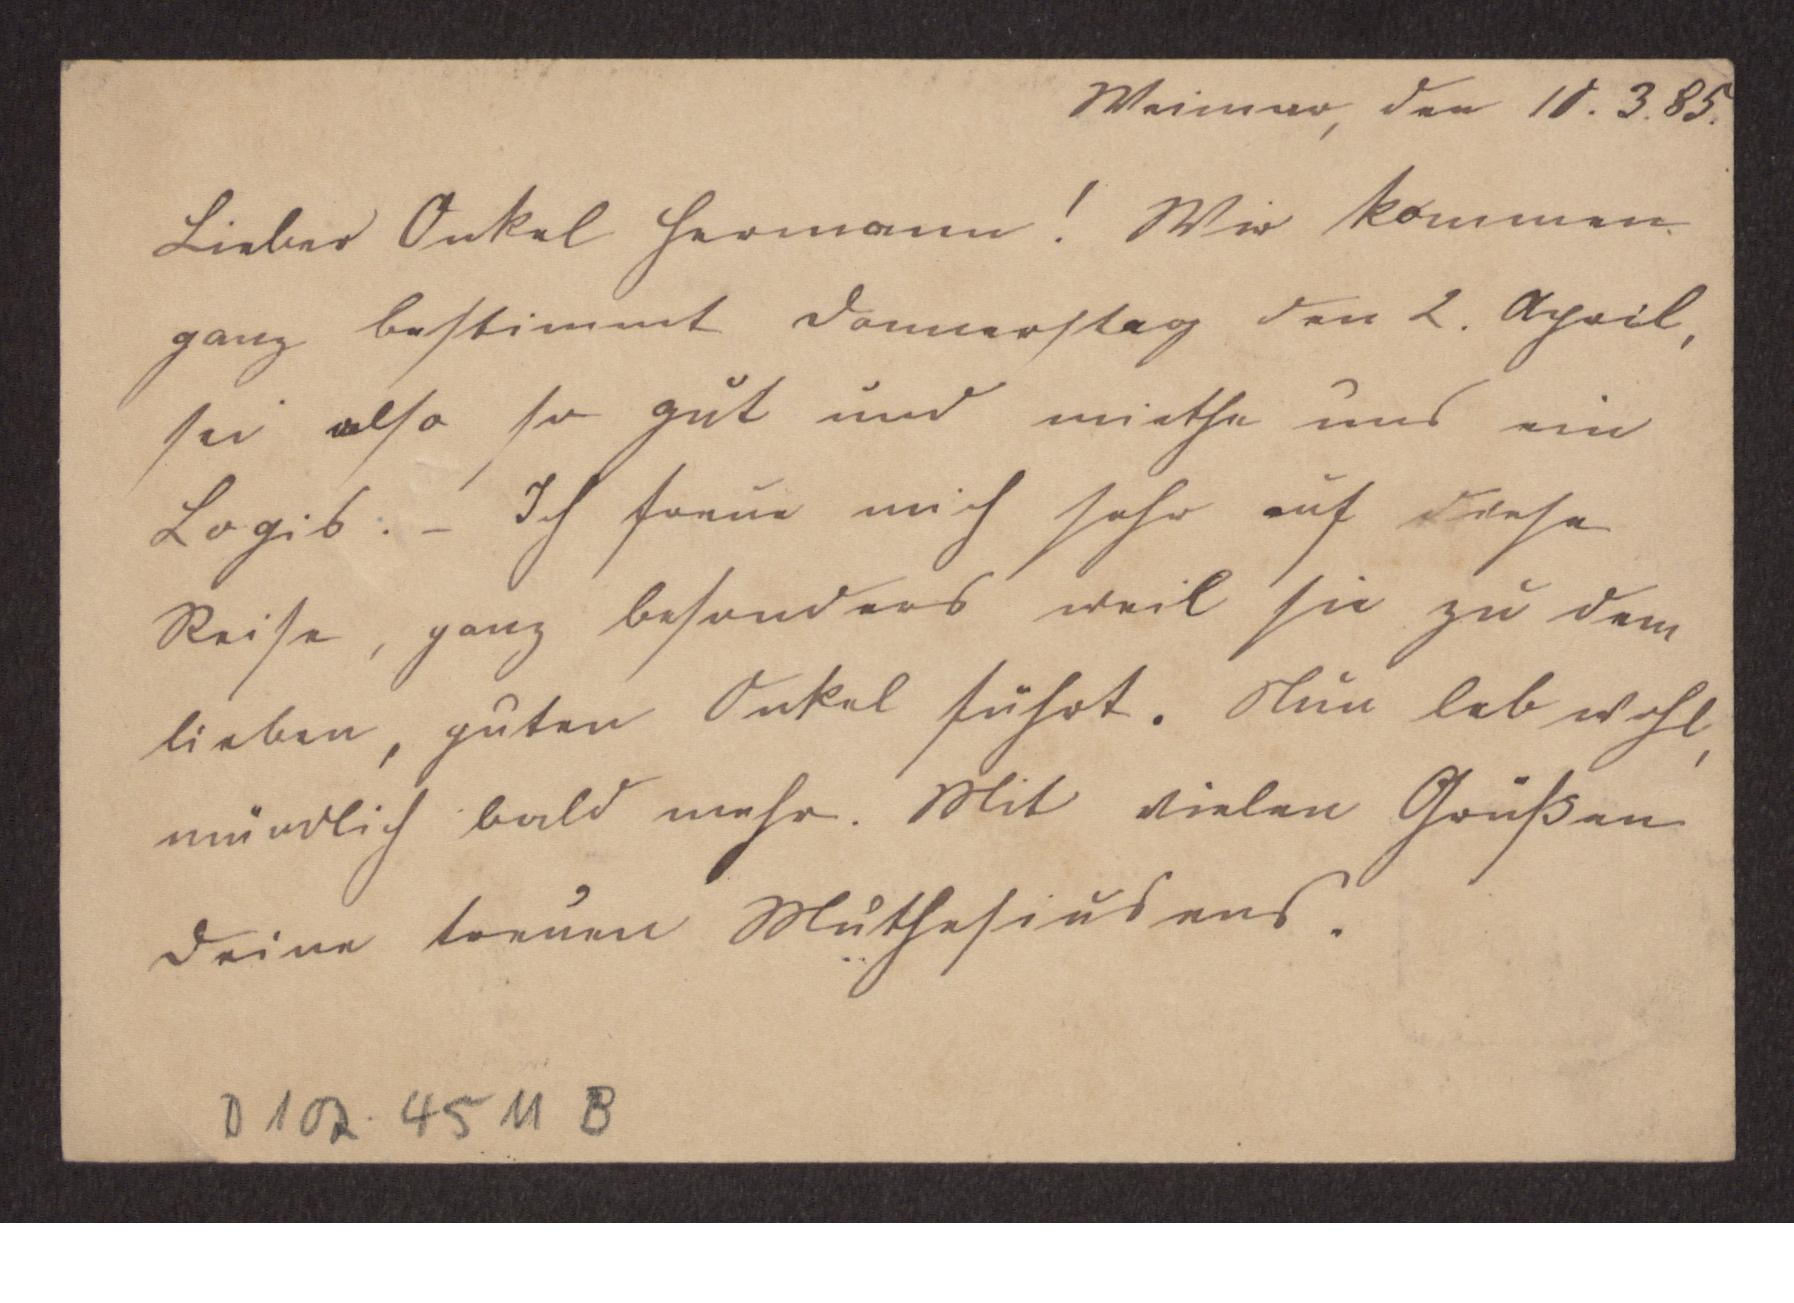 Weimar, den 18. 3. 85.
Lieber Onkel Hermann! Wir kommen
ganz bestimmt Donnerstag den 2. April,
sei also so gut und miethe uns ein
Logis. – Ich freue mich sehr auf diese
Reise, ganz besonders weil sie zu dem
lieben, guten Onkel führt. Nun leb wohl,
mündlich bald mehr. Mit vielen Grüßen
Deine treuen Muthesiusens.
D 102 4511 B